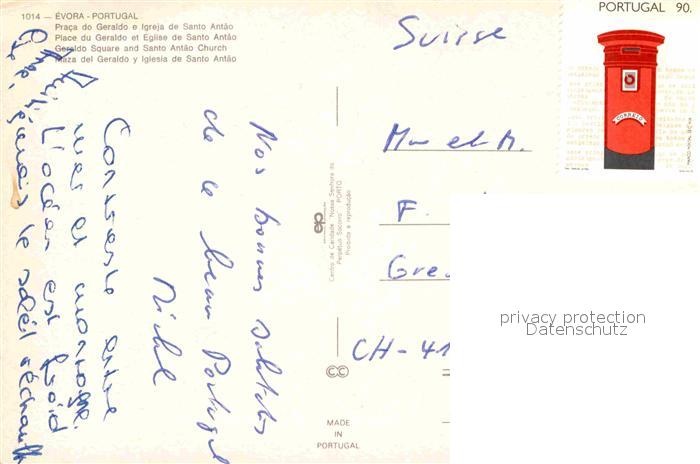 1014 — ÉVORA - PORTUGAL
Praça do Geraldo e Igreja de Santo Antão
Place du Geraldo et Eglise de Santo Antão
Geraldo Square and Santo Antão Church
Plaza del Geraldo y Iglesia de Santo Antão
Contraste entre
mer et montagne.
L'océan est froid
mais le soleil réchauffe
Nos bonnes salutations
de ce beau Portugal
Michel
Centro de Caridade "Nossa Senhora do
Perpétuo Socorro" PORTO
Proibida a reprodução
MADE
IN
PORTUGAL
Suisse
PORTUGAL 90.
CORREIO
M et M.
F.
Gre
CH-41
privacy protection
Datenschutz